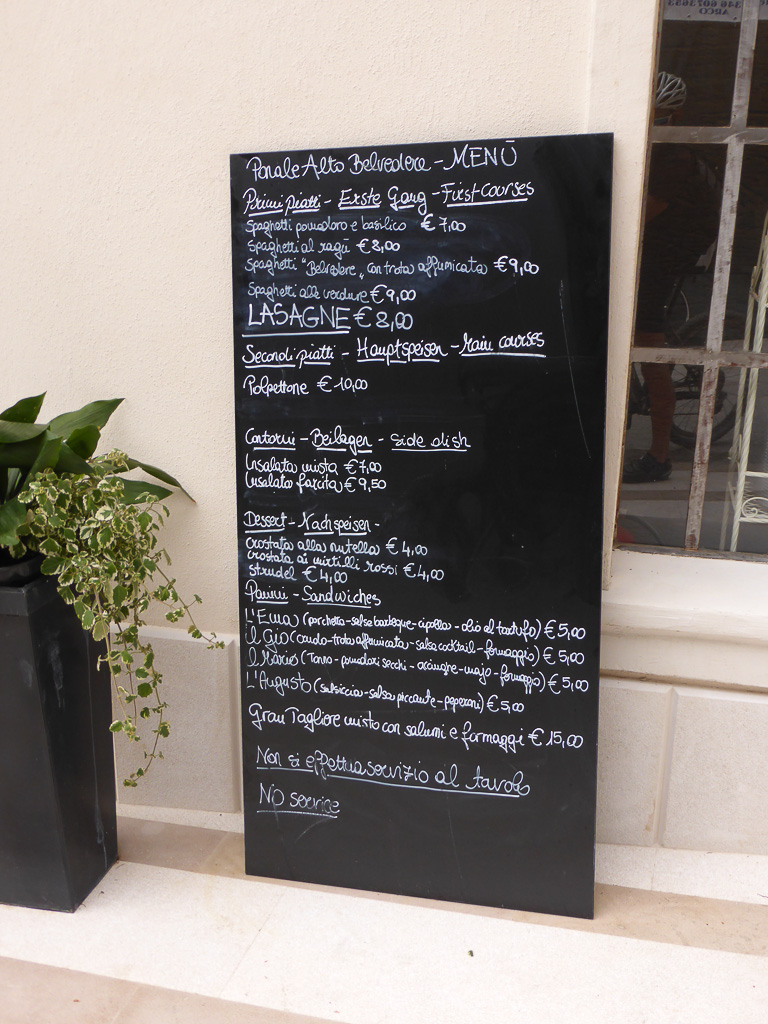 Ponale Alto Belvedere - MENÙ
Primi piatti - Erste Gang - First courses
Spaghetti pomodoro e basilico €7,00
Spaghetti al ragù €8,00
Spaghetti "Belvedere" con trota affumicata €9,00
Spaghetti alle verdure €9,00
LASAGNE €8,00
Secondi piatti - Hauptspeisen - Main courses
Polpettone €10,00
Contorni - Beilagen - side dish
Insalata mista €7,00
Insalata farcita €9,50
Dessert - Nachspeisen -
crostata alla nutella €4,00
crostata ai mirtilli rossi €4,00
strudel €4,00
Panini - Sandwiches
L'Ema (porchetta - salsa barbeque - cipolla - olio al tartufo) €5,00
il Gio (caudo - trota affumicata - salsa cocktail - formaggio) €5,00
Il Marius (Tonno - pomodori secchi - acciughe - majo - formaggio) €5,00
L'Augusto (salsiccia - salsa piccante - peperoni) €5,00
Gran Tagliere misto con salumi e formaggi €15,00
Non si effettua servizio al tavolo
No service
346 6073653
ARCO